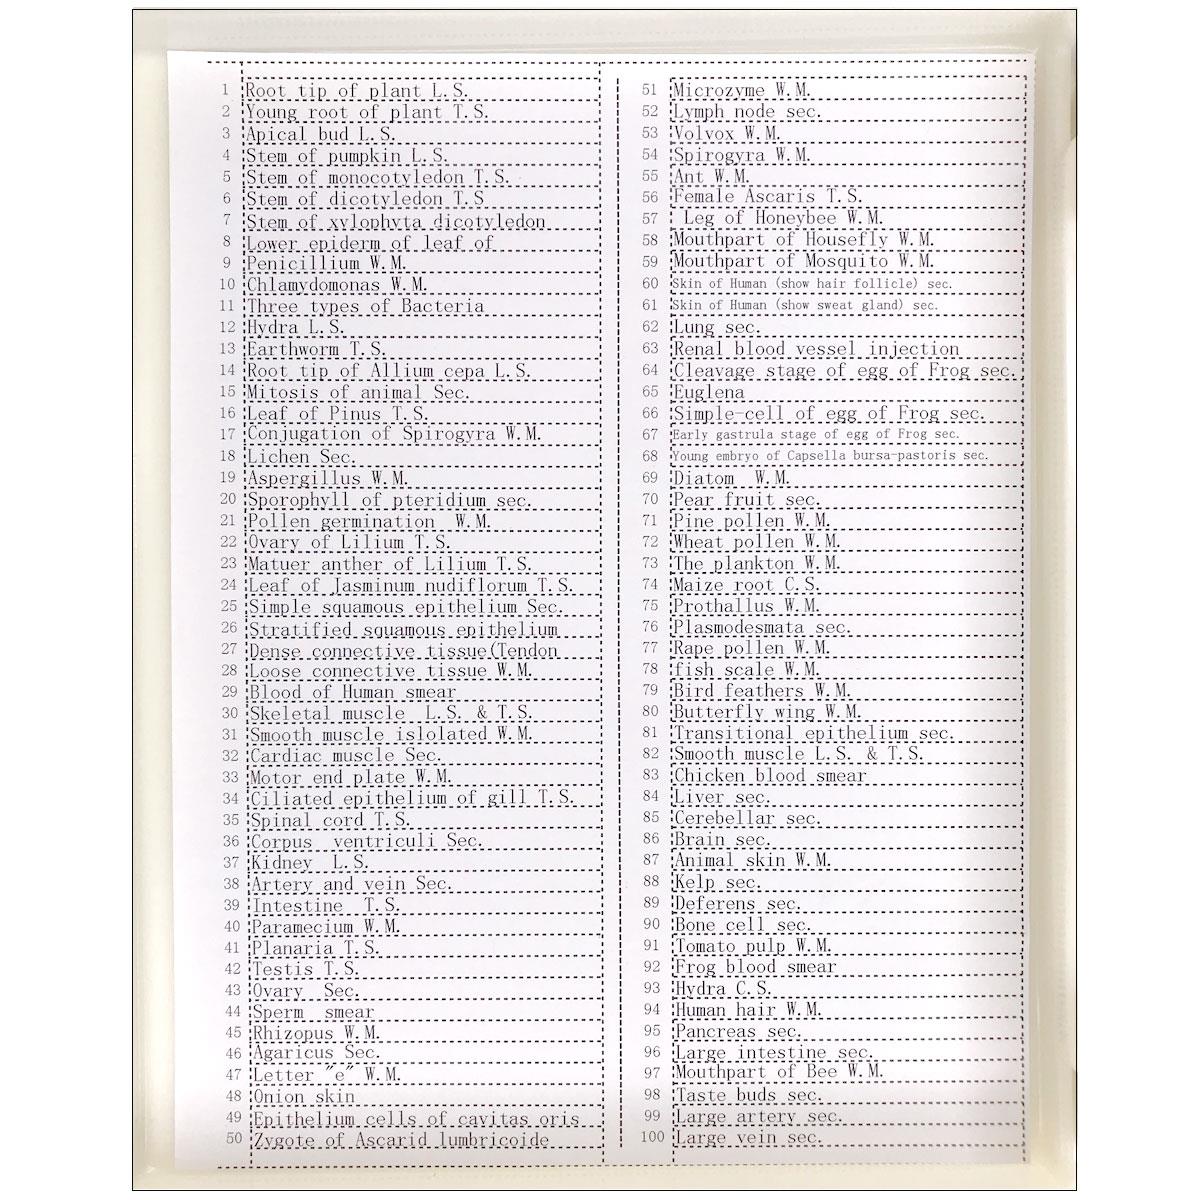 1 Root tip of plant L.S.
2 Young root of plant T.S.
3 Apical bud L.S.
4 Stem of pumpkin L.S.
5 Stem of monocotyledon T.S.
6 Stem of dicotyledon T.S
7 Stem of xylophyta dicotyledon
8 Lower epiderm of leaf of
9 Penicillium W.M.
10 Chlamydomonas W.M.
11 Three types of Bacteria
12 Hydra L.S.
13 Earthworm T.S.
14 Root tip of Allium cepa L.S.
15 Mitosis of animal Sec.
16 Leaf of Pinus T.S.
17 Conjugation of Spirogyra W.M.
18 Lichen Sec.
19 Aspergillus W.M.
20 Sporophyll of pteridium sec.
21 Pollen germination W.M.
22 Ovary of Lilium T.S.
23 Matuer anther of Lilium T.S.
24 Leaf of Jasminum nudiflorum T.S.
25 Simple squamous epithelium Sec.
26 Stratified squamous epithelium
27 Dense connective tissue(Tendon
28 Loose connective tissue W.M.
29 Blood of Human smear
30 Skeletal muscle L.S. & T.S.
31 Smooth muscle islolated W.M.
32 Cardiac muscle Sec.
33 Motor end plate W.M.
34 Ciliated epithelium of gill T.S.
35 Spinal cord T.S.
36 Corpus ventriculi Sec.
37 Kidney L.S.
38 Artery and vein Sec.
39 Intestine T.S.
40 Paramecium W.M.
41 Planaria T.S.
42 Testis T.S.
43 Ovary Sec.
44 Sperm smear
45 Rhizopus W.M.
46 Agaricus Sec.
47 Letter "e" W.M.
48 Onion skin
49 Epithelium cells of cavitas oris
50 Zygote of Ascarid lumbricoide
51 Microzyme W.M.
52 Lymph node sec.
53 Volvox W.M.
54 Spirogyra W.M.
55 Ant W.M.
56 Female Ascaris T.S.
57 Leg of Honeybee W.M.
58 Mouthpart of Housefly W.M.
59 Mouthpart of Mosquito W.M.
60 Skin of Human (show hair follicle) sec.
61 Skin of Human (show sweat gland) sec.
62 Lung sec.
63 Renal blood vessel injection
64 Cleavage stage of egg of Frog sec.
65 Euglena
66 Simple-cell of egg of Frog sec.
67 Early gastrula stage of egg of Frog sec.
68 Young embryo of Capsella bursa-pastoris sec.
69 Diatom W.M.
70 Pear fruit sec.
71 Pine pollen W.M.
72 Wheat pollen W.M.
73 The plankton W.M.
74 Maize root C.S.
75 Prothallus W.M.
76 Plasmodesmata sec.
77 Rape pollen W.M.
78 fish scale W.M.
79 Bird feathers W.M.
80 Butterfly wing W.M.
81 Transitional epithelium sec.
82 Smooth muscle L.S. & T.S.
83 Chicken blood smear
84 Liver sec.
85 Cerebellar sec.
86 Brain sec.
87 Animal skin W.M.
88 Kelp sec.
89 Deferens sec.
90 Bone cell sec.
91 Tomato pulp W.M.
92 Frog blood smear
93 Hydra C.S.
94 Human hair W.M.
95 Pancreas sec.
96 Large intestine sec.
97 Mouthpart of Bee W.M.
98 Taste buds sec.
99 Large artery sec.
100 Large vein sec.